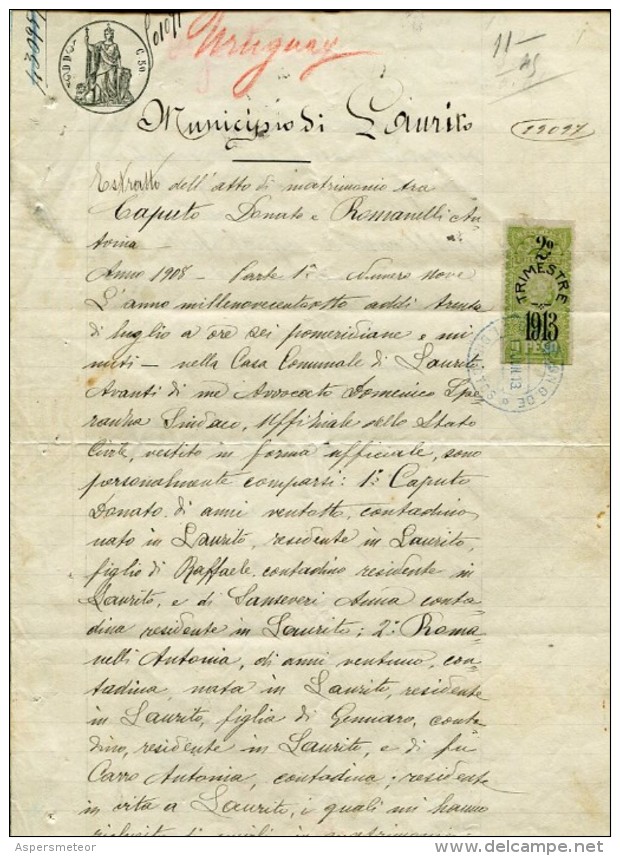 Uruguay
11-
C. 50
Municipio di Laurito
19097
Estratto dell'atto di matrimonio tra
Caputo Donato e Romanelli An
tonia -
Anno 1908 - Parte 1ª - Numero nove
L'anno millenovecentootto addì trenta
di luglio a ore sei pomeridiane e mi
nuti - nella Casa Comunale di Laurito
Avanti di me Avvocato Domenico Spe
ranza Sindaco, Uffiziale dello Stato
Civile, vestito in forma ufficiale, sono
personalmente comparsi: 1º Caputo
Donato di anni ventotto, contadino,
nato in Laurito, residente in Laurito,
figlio di Raffaele, contadino residente in
Laurito, e di Sanseveri Anna conta-
dina residente in Laurito; 2º Roma-
nelli Antonia, di anni ventuno, con-
tadina, nata in Laurito, residente
in Laurito, figlia di Gennaro, conta-
dino, residente in Laurito, e di fu
Carro Antonia, contadina, residente
in vita a Laurito, i quali mi hanno
2º
TRIMESTRE
1913
Aspersmeteor